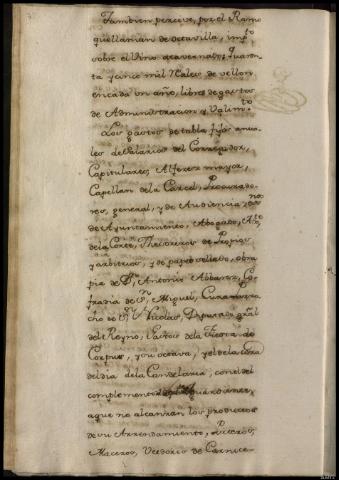 Tambien perceve, por el Ramo
que llaman de octavilla, imp.to
sobre el Vino atavernado, quaren
ta y cinco mil Reales de vellon
en cada un año, libres de gastos
de Administracion y Valim.to
Los gastos de tabla fijos anua
les de Salarios del Corregidor,
Capitulares, Alferez mayor,
Capellan de la Carcel, Procurado
res, general, y de Audiencia,
de Ayuntamiento, Abogado,
de la Corte, Thesoreros de Propios
y arbitrios, y de papel sellado, obra
pia de D.n Antonio
fradia de S.n Miguel, Cura
de S.n Nicolas, Diputado gral
del Reyno, Gastos de la Fiesta de
Corpus, y su octava, y el de la Cera
del dia de la Candelaria, con el del
complemento
a que no alcanzan, los productos
de su Arrendamiento, Porteros,
Maceros, Veedores de Carnice